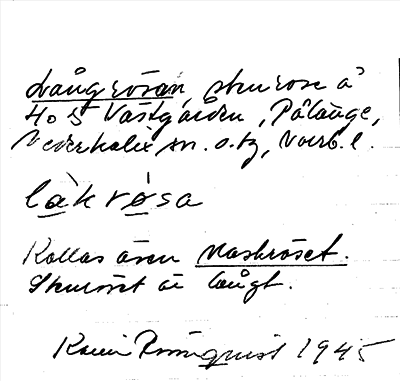 Långrösan, stenrose å
Hos Västgården, Pålänge,
Nederkalix sn. o. tg, Norrb. l.
làk rósa
Kallas även Naskröset.
Stenröset är långt.
Rönnquist 1945